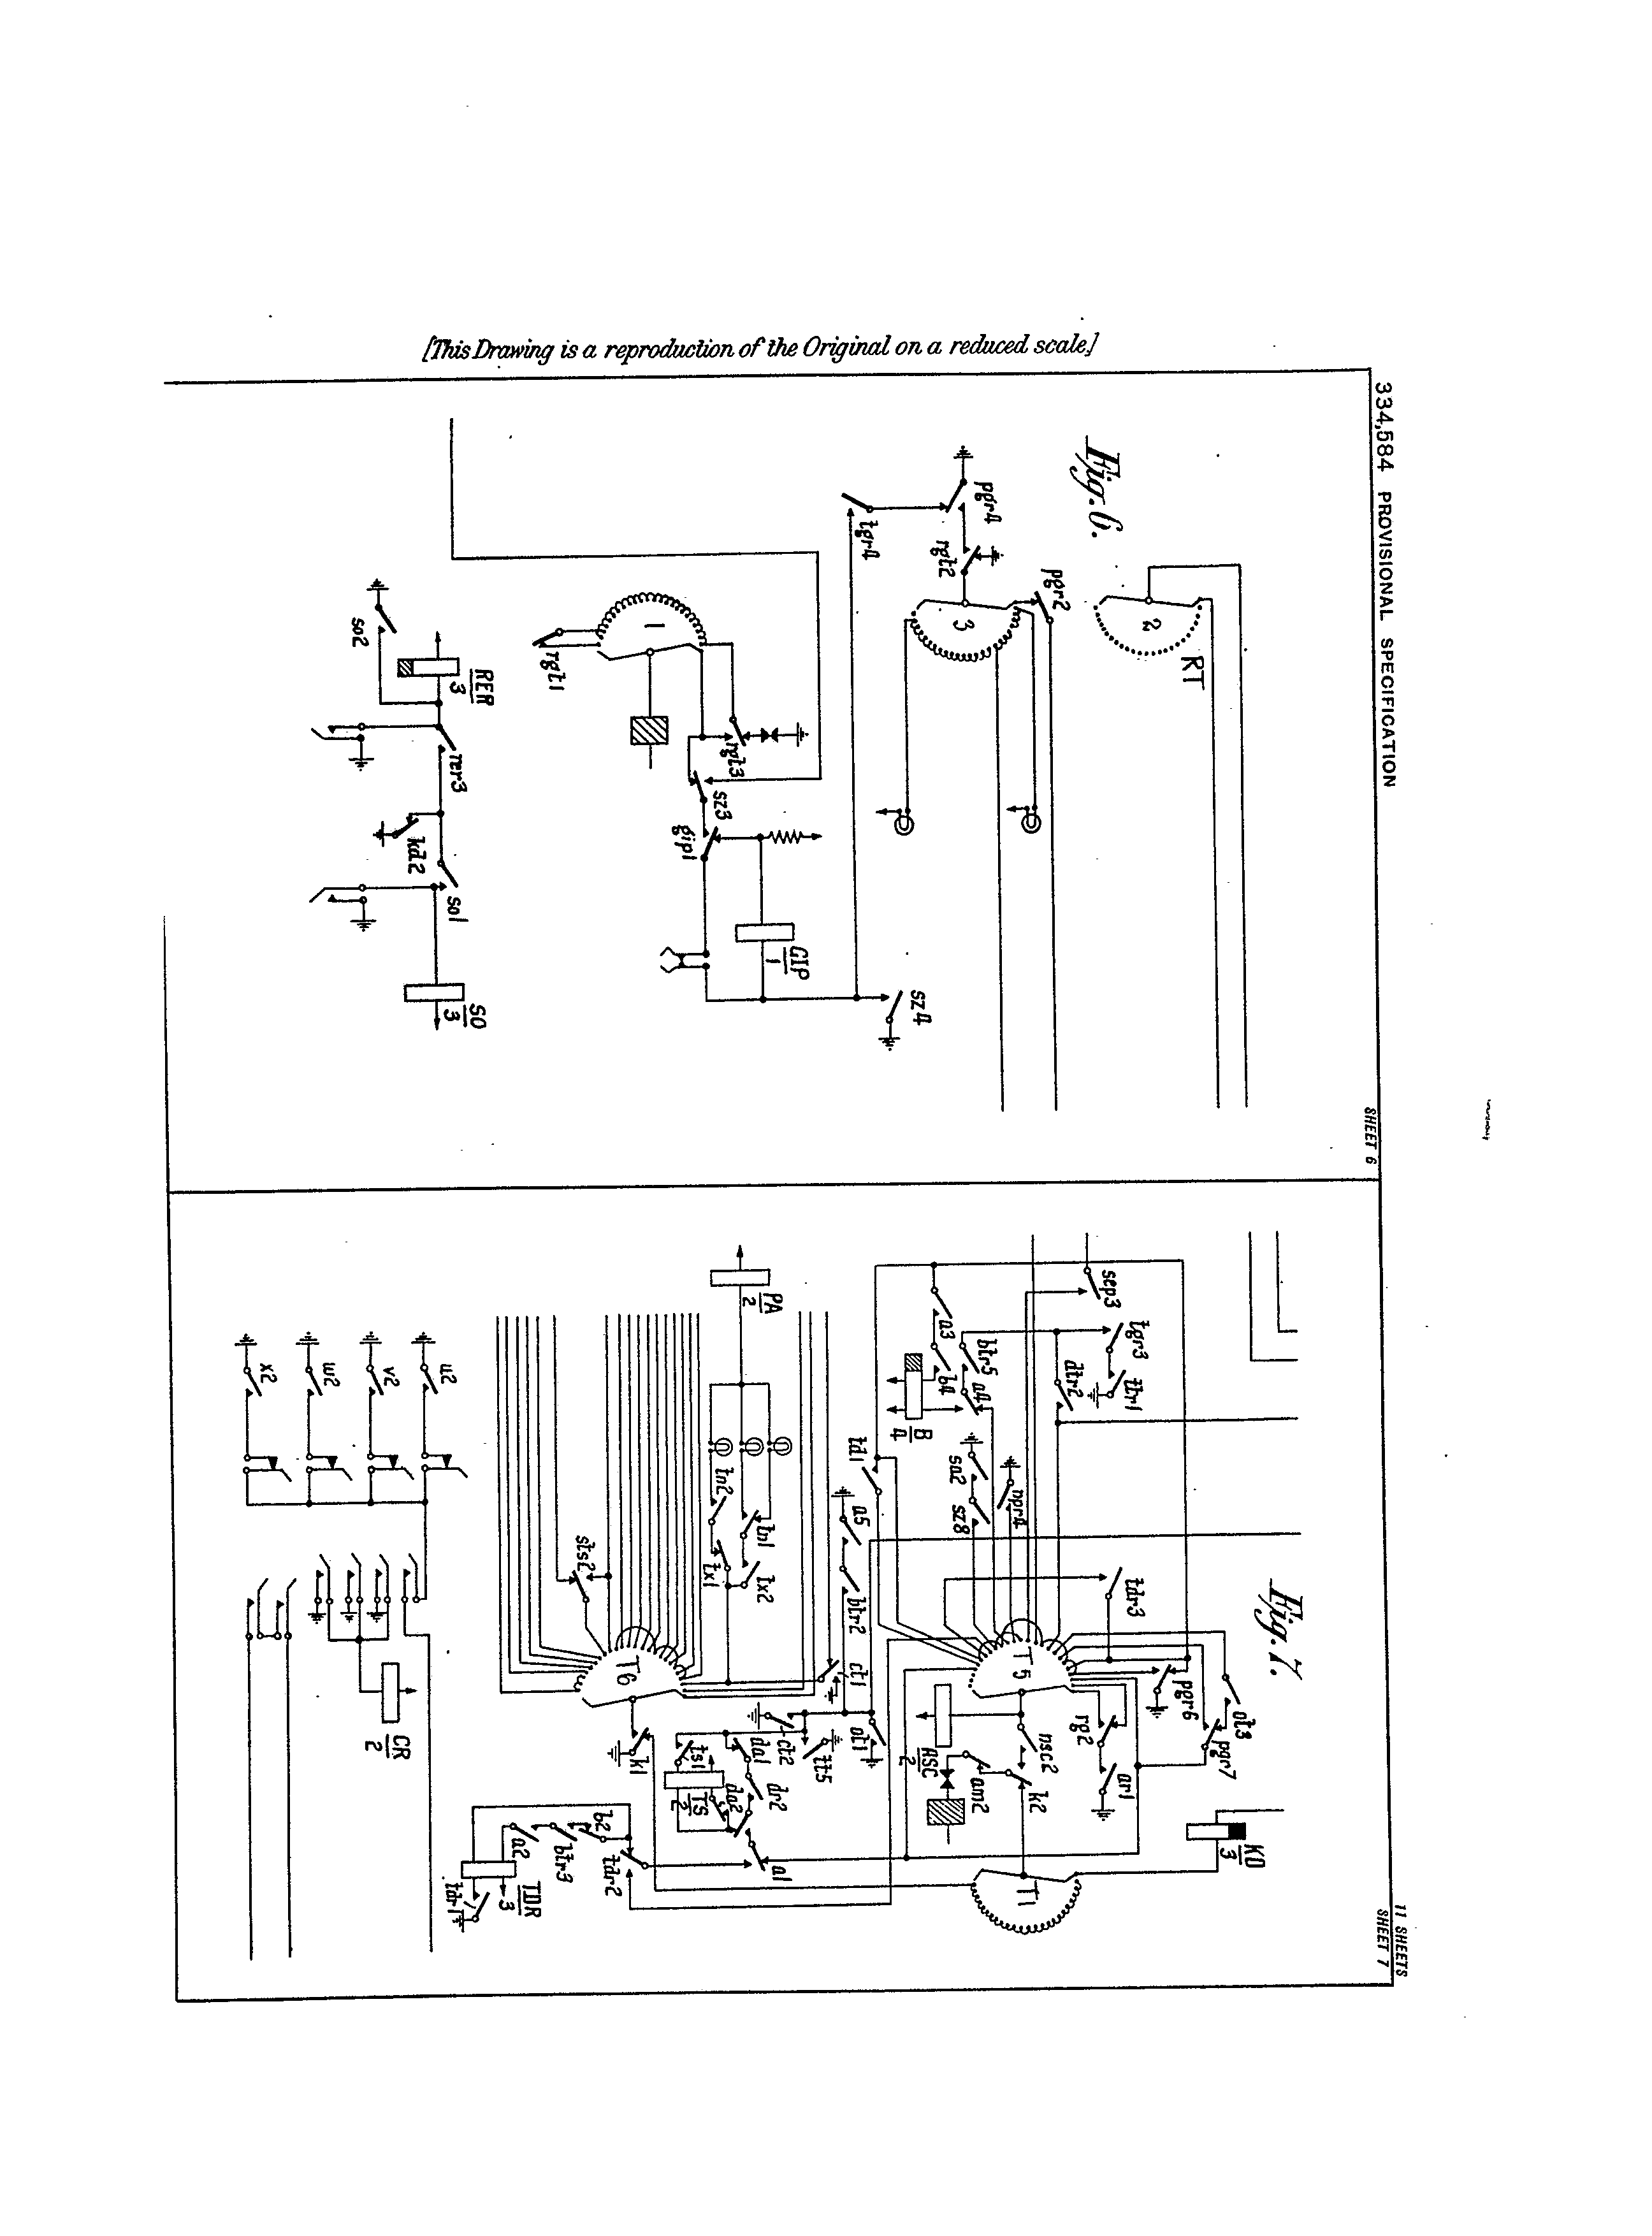 [This Drawing is a reproduction of the Original on a reduced scale.]
334,584 PROVISIONAL SPECIFICATION
SHEET 6
11 SHEETS
SHEET 7
Fig. 6.
RT
2
pgr2
pgr4
rgt2
3
tgr4
1
rgt1
rgt3
sz3
gip1
GIP
1
sz4
so2
RER
3
rer3
kd2
so1
SO
3
Fig. 7.
sep3
tgr3
tbr1
dtr2
a3
btr5
b4
a4
B
4
sa2
sz8
npr4
td1
a5
btr2
tdr3
T5
pgr6
ot3
pgr7
rg2
ar1
nsc2
k2
am2
ASC
2
KD
3
T1
PA
2
tn2
tn1
tx1
tx2
sts2
T6
ct1
ot1
ct2
tt5
k1
ts1
TS
2
da1
da2
dr2
a1
b2
btr3
a2
tdr2
TDR
3
tdr1
x2
w2
v2
u2
CR
2